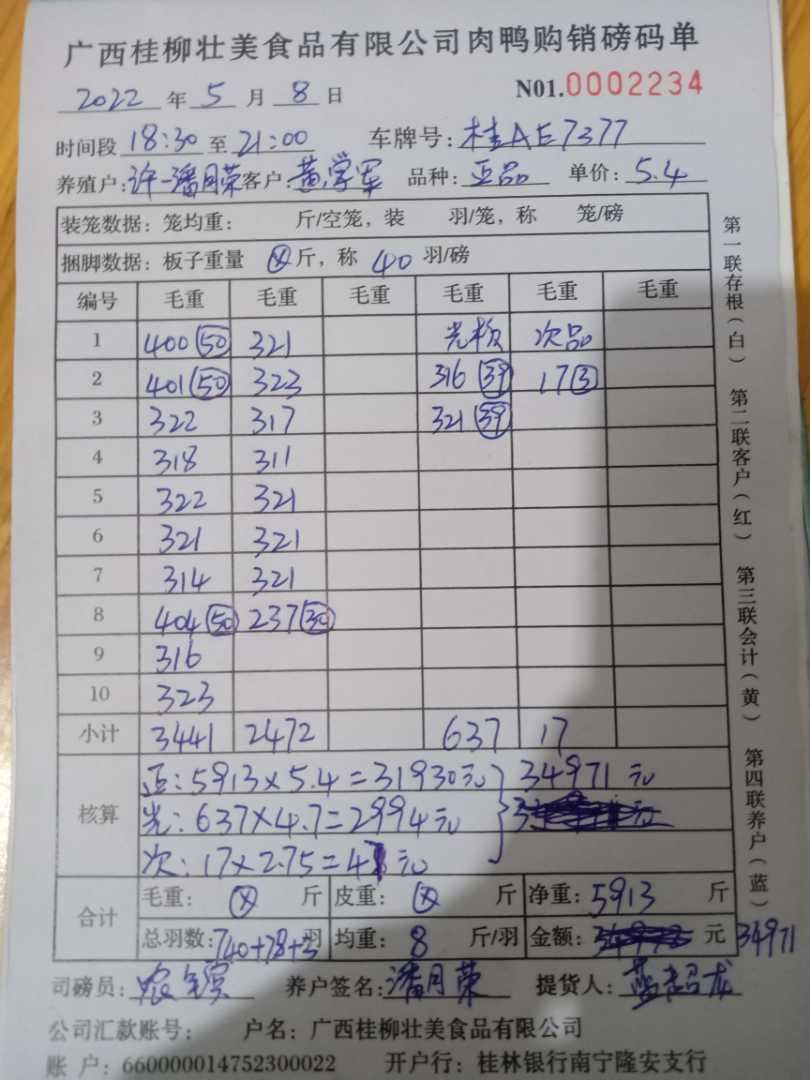 广西桂柳壮美食品有限公司肉鸭购销磅码单
2022 年 5 月 8 日 N01.0002234
时间段 18:30 至 21:00 车牌号: 桂AE7377
养殖户: 许一潘月荣 客户: 黄学军 品种: 亚品 单价: 5.4
装笼数据: 笼均重: 斤/空笼, 装 羽/笼, 称 笼/磅
捆脚数据: 板子重量 斤, 称 40 羽/磅
编号 毛重 毛重 毛重 毛重 毛重 毛重
1 400 (50) 321 次品
2 401 (50) 323 316 (39) 17 (3)
3 322 317 321 (39)
4 318 311
5 322 321
6 321 321
7 314 321
8 404 (50) 237 (30)
9 316
10 323
小计 3441 2472 637 17
核算 亚: 5913×5.4=31930元 34971元
光: 637×4.7=2994元 元
次: 17×2.75=47元
合计 毛重: 斤 皮重: 斤 净重: 5913 斤
总羽数: 740+78+3 羽 均重: 8 斤/羽 金额: 元 34971
司磅员: 养户签名: 潘月荣 提货人:
公司汇款账号: 户名: 广西桂柳壮美食品有限公司
账 户: 660000014752300022 开户行: 桂林银行南宁隆安支行
第一联存根(白) 第二联客户(红) 第三联会计(黄) 第四联养户(蓝)